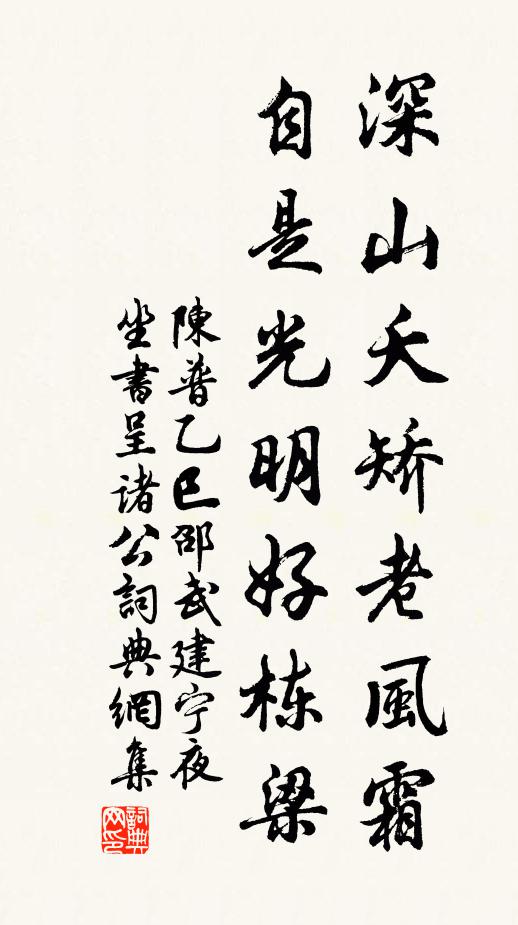 深山夭矯老風霜
自是光明好栋梁
陳普乙巳邵武建宁夜
坐書呈諸公詞典網集
詞典
网印